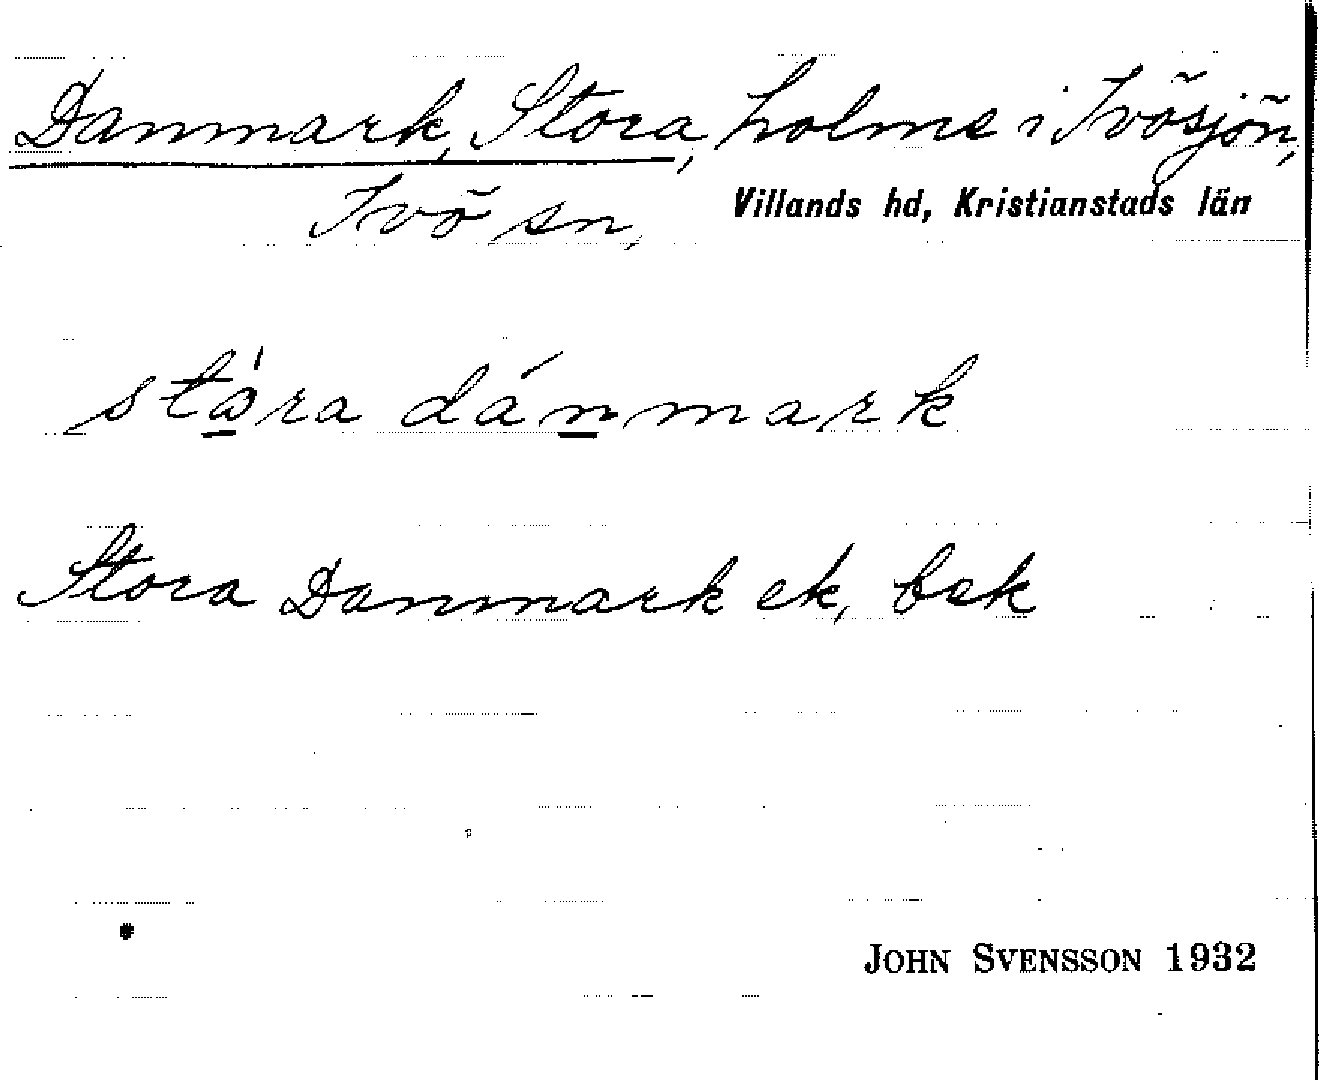 Danmark, Stora, holme i Ivösjön,
Ivö sn, Villands hd, Kristianstads län
stώra dánmark
Stora Danmark ek, bek
JOHN SVENSSON 1932